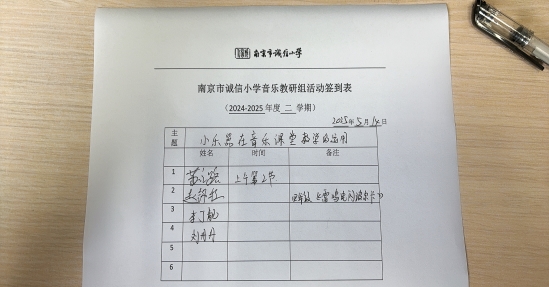 南京市诚信小学
南京市诚信小学音乐教研组活动签到表
(2024-2025年度 二 学期)
2025年5月14日
主题 小乐器在音乐课堂教学的运用
姓名 时间 备注
1 上午第2节
2 《雷鸣电闪波尔卡》
3
4 刘丹丹
5
6